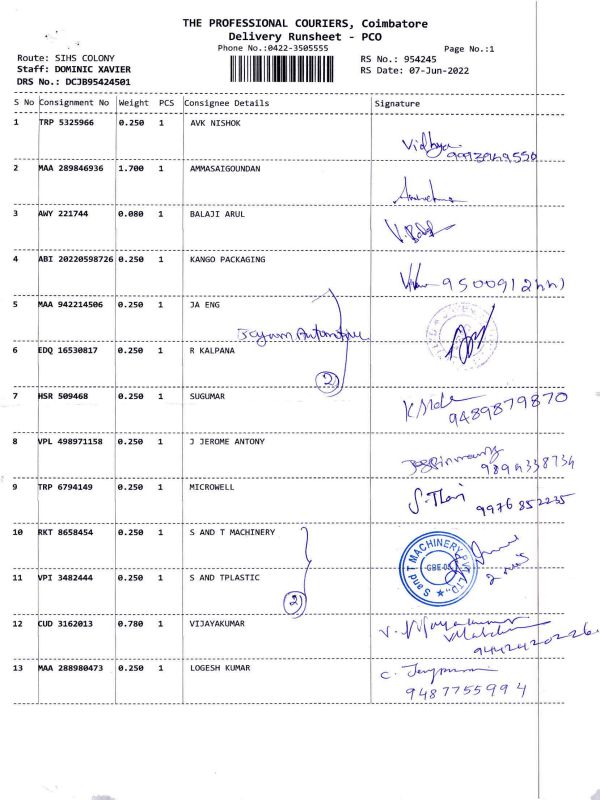 THE PROFESSIONAL COURIERS, Coimbatore
Delivery Runsheet - PCO
Phone No.:0422-3505555
Page No.:1
Route: SIHS COLONY
RS No.: 954245
Staff: DOMINIC XAVIER
RS Date: 07-Jun-2022
DRS No.: DCJB95424501
S No Consignment No Weight PCS Consignee Details Signature
1 TRP 5325966 0.250 1 AVK NISHOK
Vidhya
2 MAA 289846936 1.700 1 AMMASAIGOUNDAN
3 AWY 221744 0.080 1 BALAJI ARUL
4 ABI 20220598726 0.250 1 KANGO PACKAGING
5 MAA 942214506 0.250 1 JA ENG
6 EDQ 16530817 0.250 1 R KALPANA
2
7 HSR 509468 0.250 1 SUGUMAR
9489879870
8 VPL 498971158 0.250 1 J JEROME ANTONY
9894338734
9 TRP 6794149 0.250 1 MICROWELL
9976852235
10 RKT 8658454 0.250 1 S AND T MACHINERY
S and T MACHINERY PVT. LTD.,
11 VPI 3482444 0.250 1 S AND TPLASTIC
2
12 CUD 3162013 0.780 1 VIJAYAKUMAR
V. Vijayakumar
9442420226
13 MAA 288980473 0.250 1 LOGESH KUMAR
9487755994